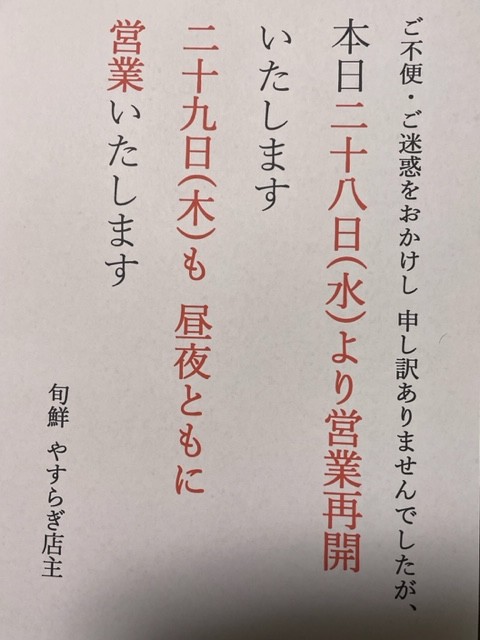 ご不便・ご迷惑をおかけし 申し訳ありませんでしたが、
本日二十八日(水)より営業再開
いたします
二十九日(木)も 昼夜ともに
営業いたします
旬鮮 やすらぎ店主